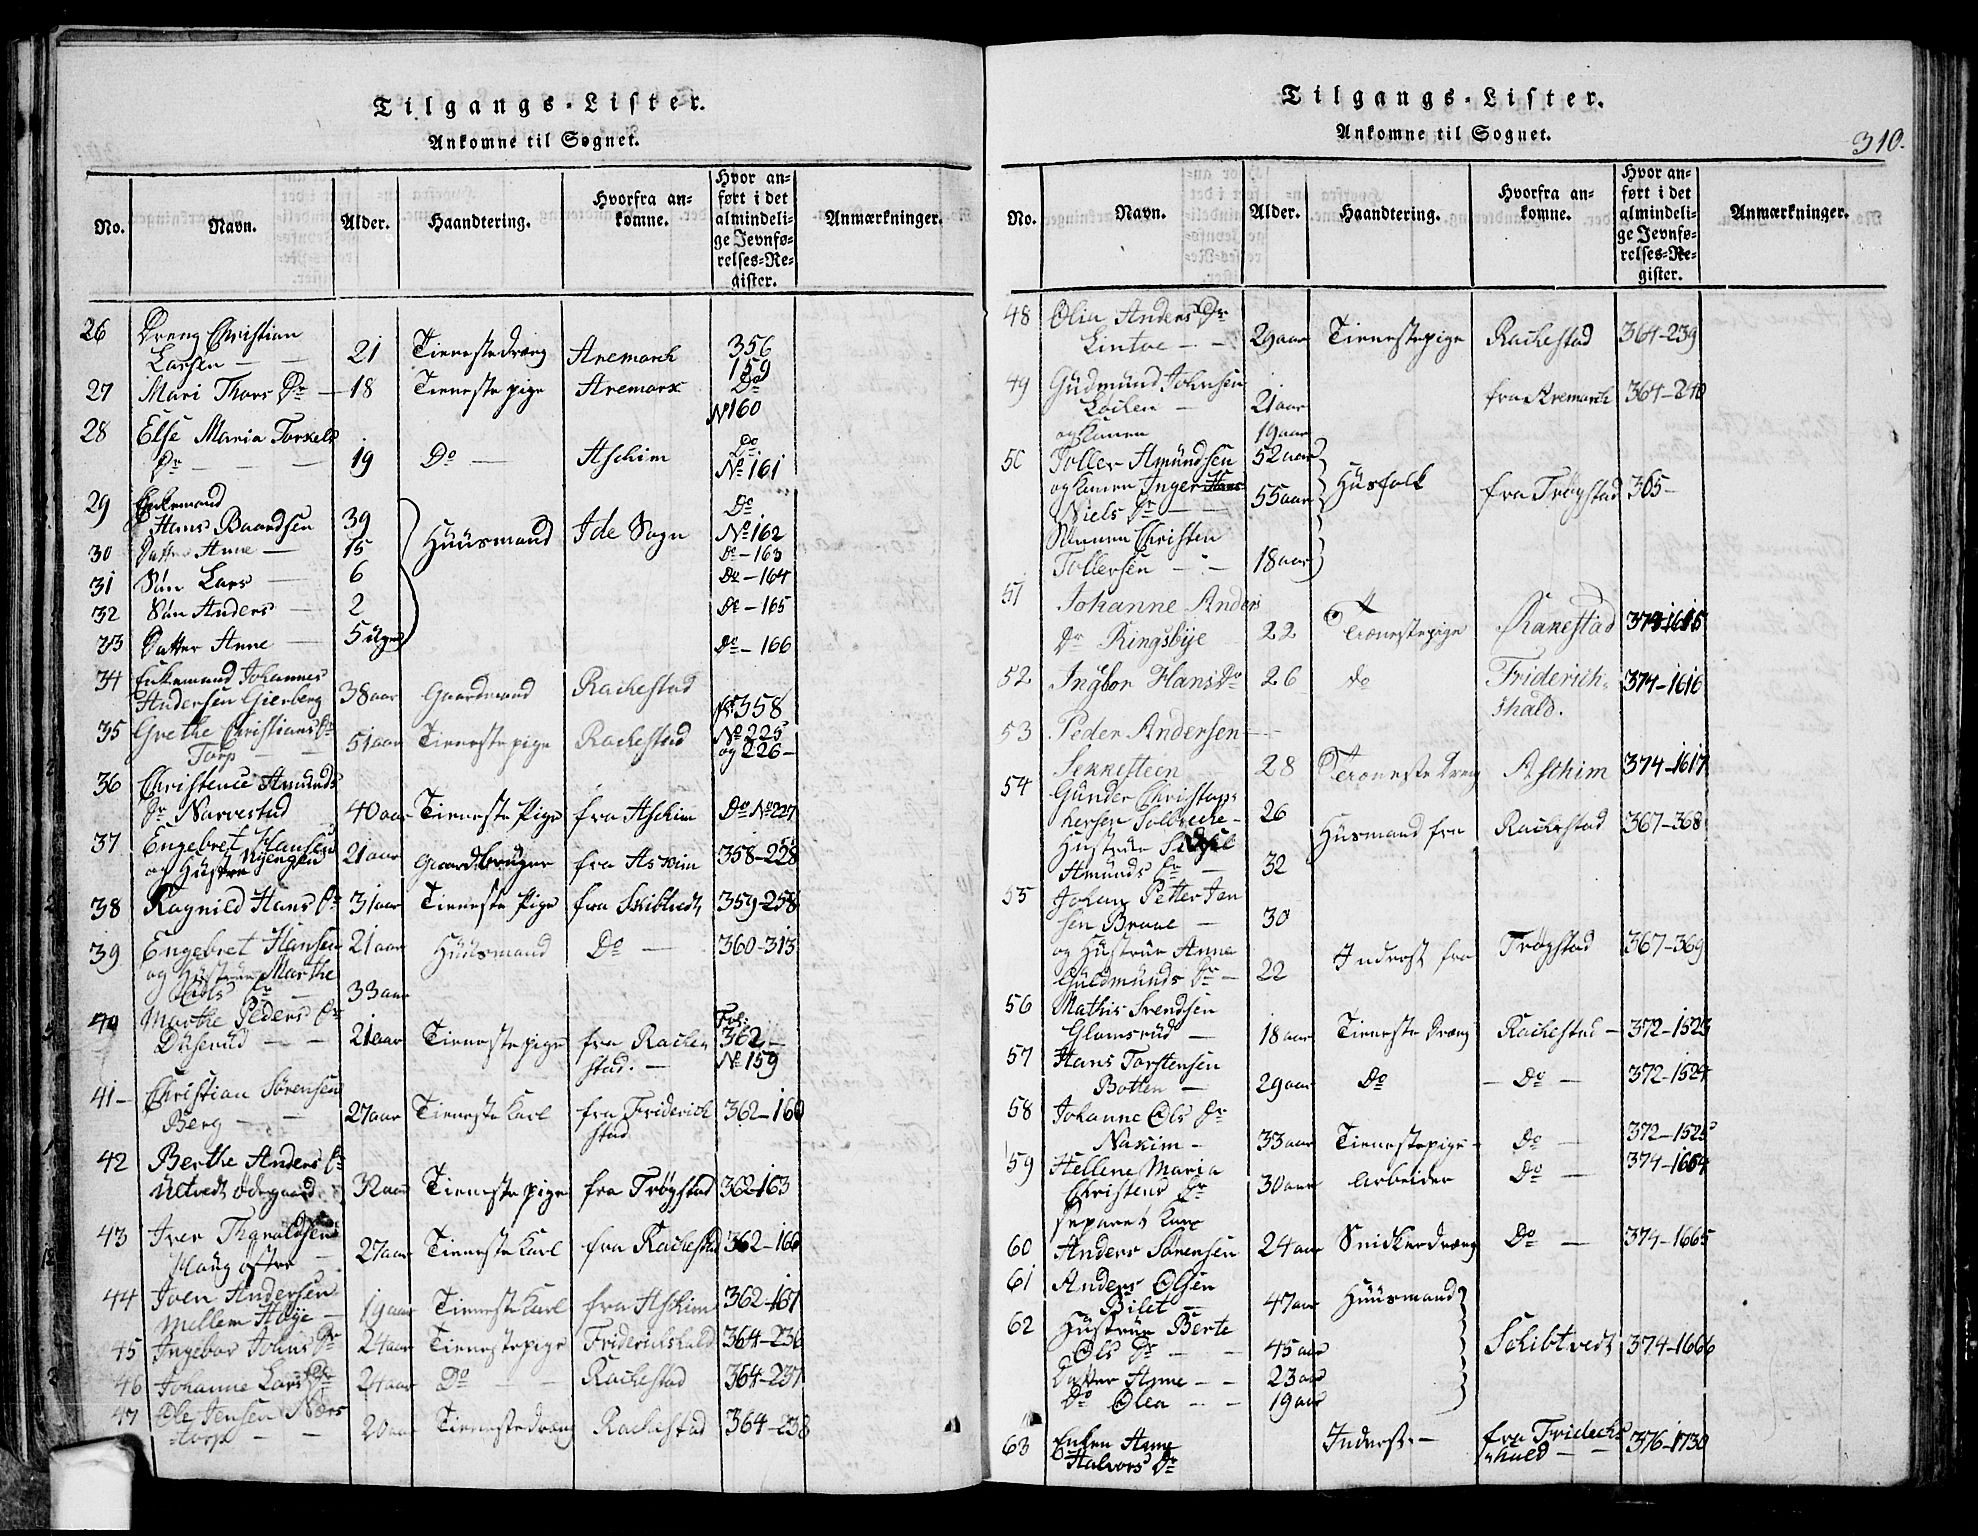 Tilgangs-Lister.
Ankomne til Sognet.
No. Navn. Alder. Haandtering. Hvorfra an-komne. Hvor an-ført i det almindeli-ge Jevnfø-relses-Re-gister. Anmærkninger.
26 Dreng Christian
Larsen — 21 Tienestedreng Aremarch 356
159
27 Mari Thors Dr — 18 Tieneste pige Aremark Do
No 160
28 Else Maria Torkels
Dr — 19 Do — Aschim Do
No 161
29 Enkemand
Hans Baardsen 39 Huusmand Ide Sogn Do
No 162
30 Datter Anne — 15 Do — 163
31 Søn Lars — 6 Do — 164
32 Søn Anders — 2 Do — 165
33 Datter Anne 5 Uger Do — 166
34 Enkemand Johannes
Andersen Gierberg 38 aar Gaardmand Rachestad
No 358
35 Grethe Christians Dr
Torp — 51 aar Tieneste pige Rachestad No 225
og 226 —
36 Christence Amunds
Dr Narvestad 40 aar Tieneste Pige fra Aschim Do No 227
37 Engebret Hansen
og Hustru Nyengen 21 aar Gaardbruger fra Askim 358-228
38 Ragnild Hans Dr 31 aar Tieneste Pige fra Skibtvedt 359-258
39 Engebret Hansen 21 aar Huusmand Do — 360-313
og Hustrue Marthe
Ols Dr — 33 aar
40 Marthe Peders Dr
Duserud — 21 aar Tienestepige fra Rachen
stad. — Fol:
362 —
No 159
41 — Christian Sørensen
Berg — 27 aar Tieneste Karl fra Friderich
stad 362-160
42 Berthe Anders Dr
Ultvedt ødegaard 32 aar Tieneste pige fra Trøgstad 362-163
43 Iver Thoraldsen
Haug østre 27 aar Tieneste Karl fra Rachestad 362-166
44 Joen Andersen
Mellem Haije — 19 aar Tieneste Karl fra Aschim 362-167
45 Ingebor Johns Dr 24 aar Tienestepige Friderichshald 364-236
46 Johanne Lars Dr 24 aar Do — Rachestad 364-237
47 Ole Jensen Næs
torp — 20 aar Tienestedreng Rachestad 364-238
Tilgangs-Lister.
Ankomne til Sognet.
310.
No. Navn. Alder. Haandtering. Hvorfra an-komne. Hvor an-ført i det almindeli-ge Jevnfø-relses-Re-gister. Anmærkninger.
48 Olia Anders Dr
Lintoe — 29 aar Tienestepige Rachestad 364-239
49 Gudmund Johnsen
Løchen — 21 aar fra Aremarch 364-240
og Konen 19 aar
50 Toller Amundsen 52 aar
og Konen Inger Hans
Niels Dr — 55 aar Husfolk fra Trøgstad 365-
Sønnen Christen
Tollersen — 18 aar
51 Johanne Anders
Dr Ringsbye 22 Tienestepige Rakestad 374-1615
52 Ingbor Hans Dr 26 do Friderich-
shald. 374-1616
53 Peder Andersen —
Sekkesteen 28 Tieneste Dreng Aschim 374-1617
54 Gunder Christop-
hersen 26
Hustrue
Amunds Dr — 32 Husmand fra Rachestad 367-368
55 Johan Petter Jen
sen Braae — 30
og Hustrue Anne
Guldmunds Dr — 22 Inderst fra Trøgstad 367-369
56 Mathis Svendsen
Glomsrud — 18 aar Tieneste Dreng Rachestad — 372-1523
57 Hans Torstensen
Botten — 29 aar Do — Do — 372-1524
58 Johanne Ols Dr
Nakim — 33 aar Tienestepige — Do — 372-1525
59 Hellene Maria
Christens Dr 30 aar Arbeider Do — 374-1664
separet Kone
60 Anders Sørensen 24 aar Snickerdreng Do — 374-1665
61 Anders Olsen
Bilet — 47 aar Huusmand
62 Hustrue Berte
Ols Dr — 45 aar Schibtvedt 374-1666
Datter Anne — 23 aar
Do Olea — 19 aar
63 Enken Anne
Halvors Dr Inderst — fra Friderichs
hald — 376-1730